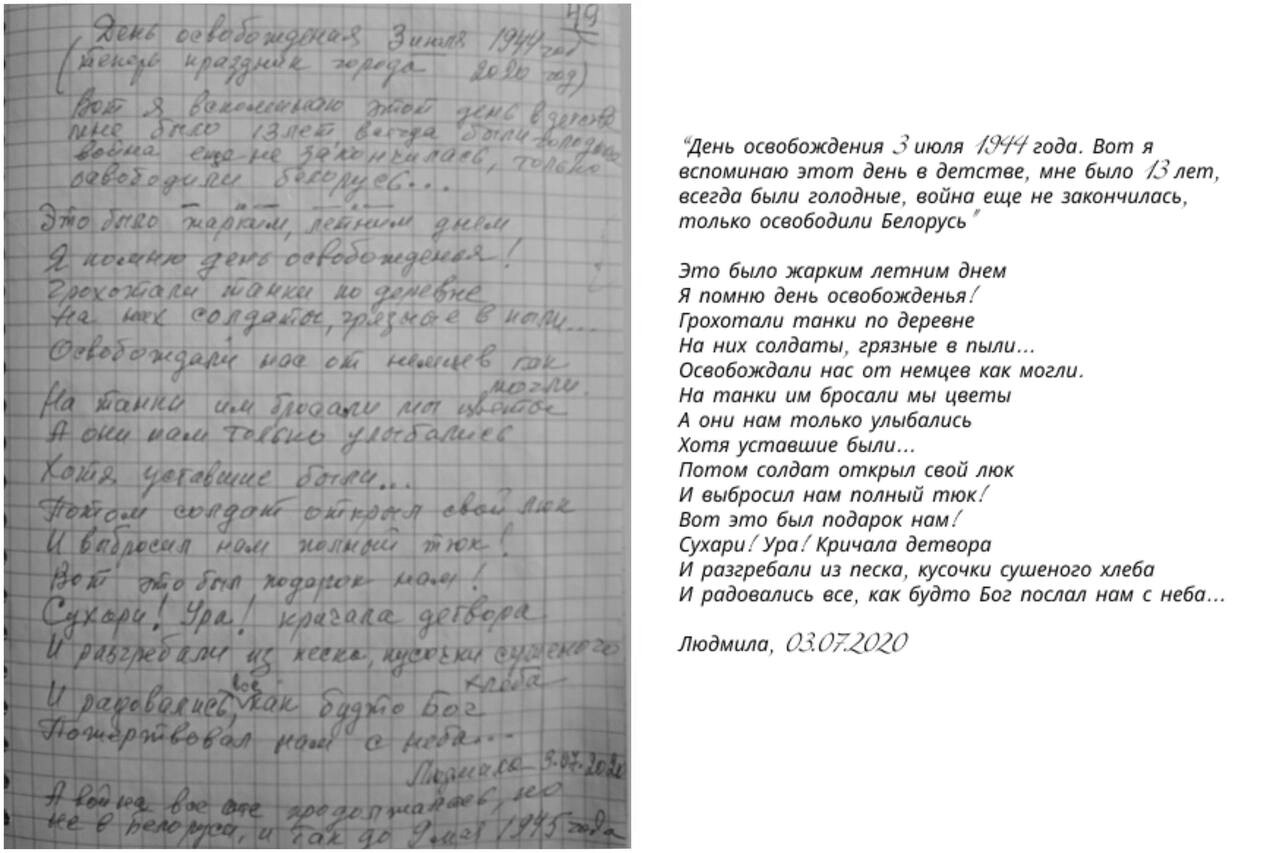 49
День освобождения 3 июля 1944 год
(теперь праздник города 2020 год)
Вот я вспоминаю этот день в детстве
мне было 13 лет, всегда были голодные
война еще не закончилась, только
освободили белорусь...
Это было жарким, летним днем
Я помню день освобожденья!
Грохотали танки по деревне
На них солдаты, грязные в пыли...
Освобождали нас от немцев как
могли.
На танки им бросали мы цветы
А они нам только улыбались
Хотя уставшие были...
Потом солдат открыл свой люк
И выбросил нам полный тюк!
Вот это был подарок нам!
Сухари! Ура! кричала детвора
И разгребали из песка, кусочки сушеного
хлеба
И радовались, все как будто Бог
Пожертвовал нам с неба...
Людмила 3.07.2020
А война все еще продолжалась, но
не в Белоруси, и так до 9 мая 1945 года
"День освобождения 3 июля 1944 года. Вот я
вспоминаю этот день в детстве, мне было 13 лет,
всегда были голодные, война еще не закончилась,
только освободили Белорусь"
Это было жарким летним днем
Я помню день освобожденья!
Грохотали танки по деревне
На них солдаты, грязные в пыли...
Освобождали нас от немцев как могли.
На танки им бросали мы цветы
А они нам только улыбались
Хотя уставшие были...
Потом солдат открыл свой люк
И выбросил нам полный тюк!
Вот это был подарок нам!
Сухари! Ура! Кричала детвора
И разгребали из песка, кусочки сушеного хлеба
И радовались все, как будто Бог послал нам с неба...
Людмила, 03.07.2020